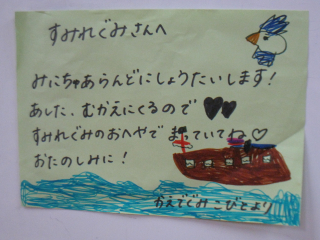 すみれぐみさんへ
みにちゅあらんどにしょうたいします!
あした、むかえにくるので♥♥
すみれぐみのおへやでまっていてね♡
おたのしみに!
かえでぐみ こびとより